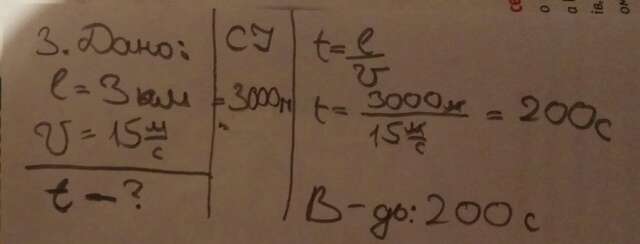 3. Дано:
l = 3 км
V = 15 м/с
t – ?
СІ
= 3000м
t = l/V
t = 3000м / 15 м/с = 200с
В-дь: 200с
о
а
ів.